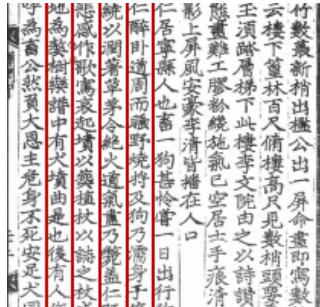 竹數叢新梢出檻公出一屏命畫即寫數
三樓下篁林百尺備樓高尺見數梢頭要
頂踏層梯下此樓李文院由之以詩讚
態畫難工膠粉纔施氣已空居士手痕清
影上屏風安豪李清皆播在人口
仁居寧縣人也畜一狗甚怜嘗一日出行
仁醉臥道周而睡野燒將及狗乃濡身于
繞以潤著草茅令絶火道氣盡乃斃盖仁
悲感作歌寫哀起墳以葬植杖以誌之杖
地爲獒樹樂譜中有犬墳曲是也後有人
呼爲畜公然負大恩主危身不死安足犬